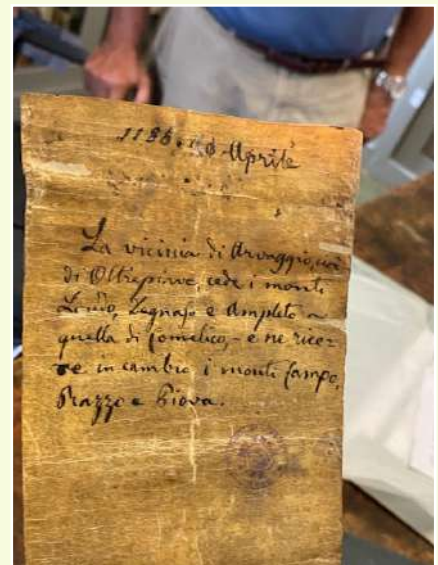 1186. 10 Aprile
La vicinia di Arvaggio, voi
di Oltrepiave, cede i monti
Zegnaso e Ampleto a
quella di Comelico, - e ne rice-
ve in cambio i monti Campo,
Razzo e Piova.